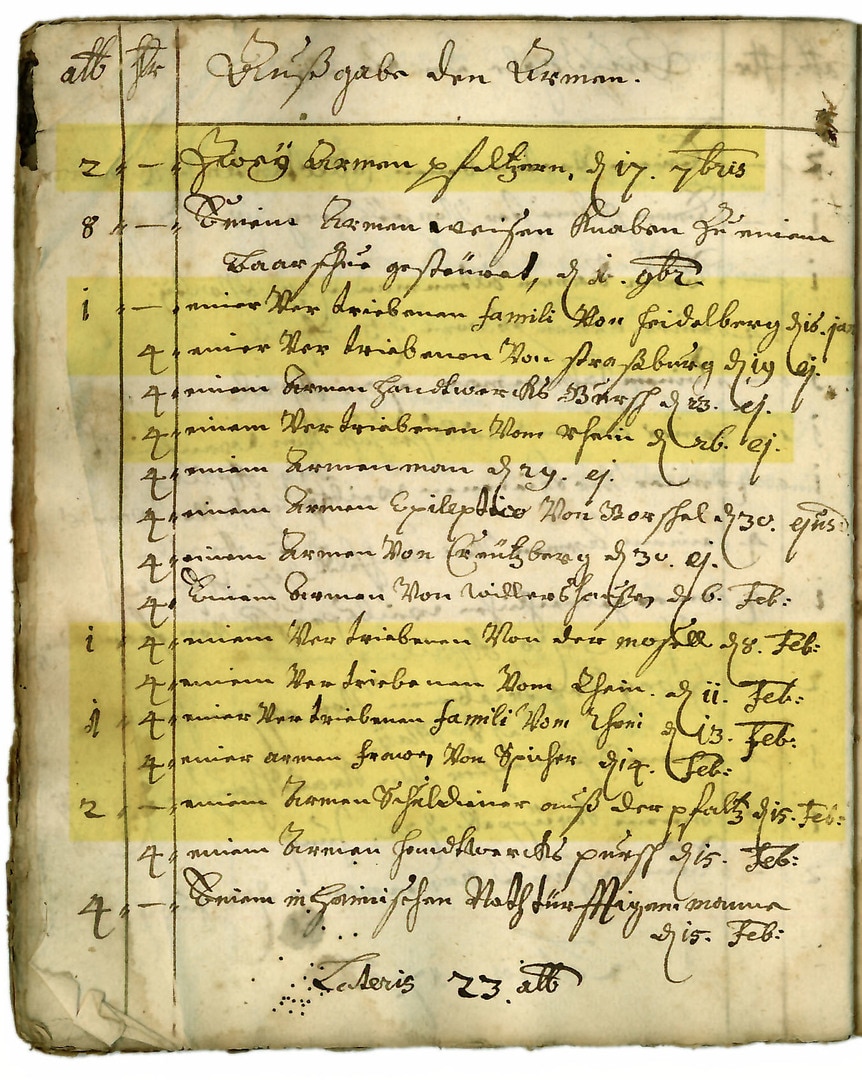 alb hlr Außgabe den Armen.
2 " — " Zwey Armen pfältzern, d 17. 7bris
8 " — " Einem Armen weisen Knaben Zu einem
baar schue gesteürat, d 1. 9br.
1 " — " einer Vertriebenen famili Von Heidelberg d 16. jan
4 " einer Vertriebenen Von straßburg d 19 ej.
4 " einem Armen Handtwercks Bursch d 23. ej.
4 " einem Vertriebenen Vom rhein d 26. ej.
4 " einem Armen man d 29. ej.
4 " einem Armen Epileptico Von Borschel d 30. ejus:
4 " einem Armen Von Creützberg d 30. ej.
4 " Einem Armen Von Willershausen d 6. Feb:
1 " 4 " einem Vertriebenen Von der mosell d 8. Feb:
4 " einem Vertriebenen Vom Rhein. d 11. Feb:
1 " 4 " einer Vertriebenen famili Vom Rhein d 13. Feb:
4 " einer armen frawen Von Spicher d 14. Feb:
2 " — " einem Armen Schuldiener auß der pfaltz d 15. Feb:
4 " einem Armen handtwercks pursch d 15. Feb:
4 " — " Einem inheimischen Nothtürfftigen manne
d 15. Feb:
Lateris 23 alb